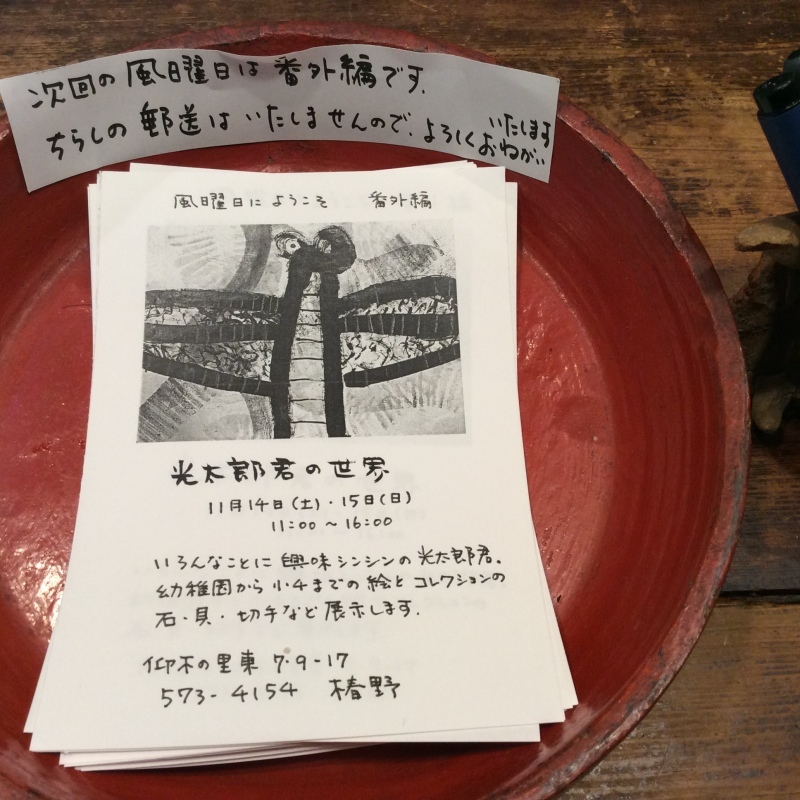 次回の風曜日は番外編です.
ちらしの郵送はいたしませんので、よろしくおねがい
いたします
風曜日にようこそ 番外編
光太郎君の世界
11月14日(土)・15日(日)
11:00～16:00
いろんなことに興味シンシンの光太郎君.
幼稚園から小4までの絵とコレクションの
石・貝・切手など展示します.
仰木の里東 7-9-17
573-4154 椿野